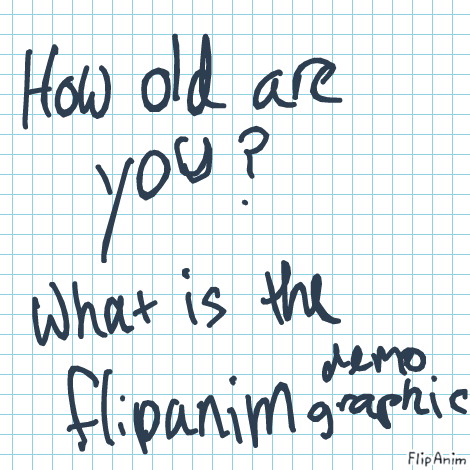 How old are
you?
What is the
flipanim demo
graphic
FlipAnim